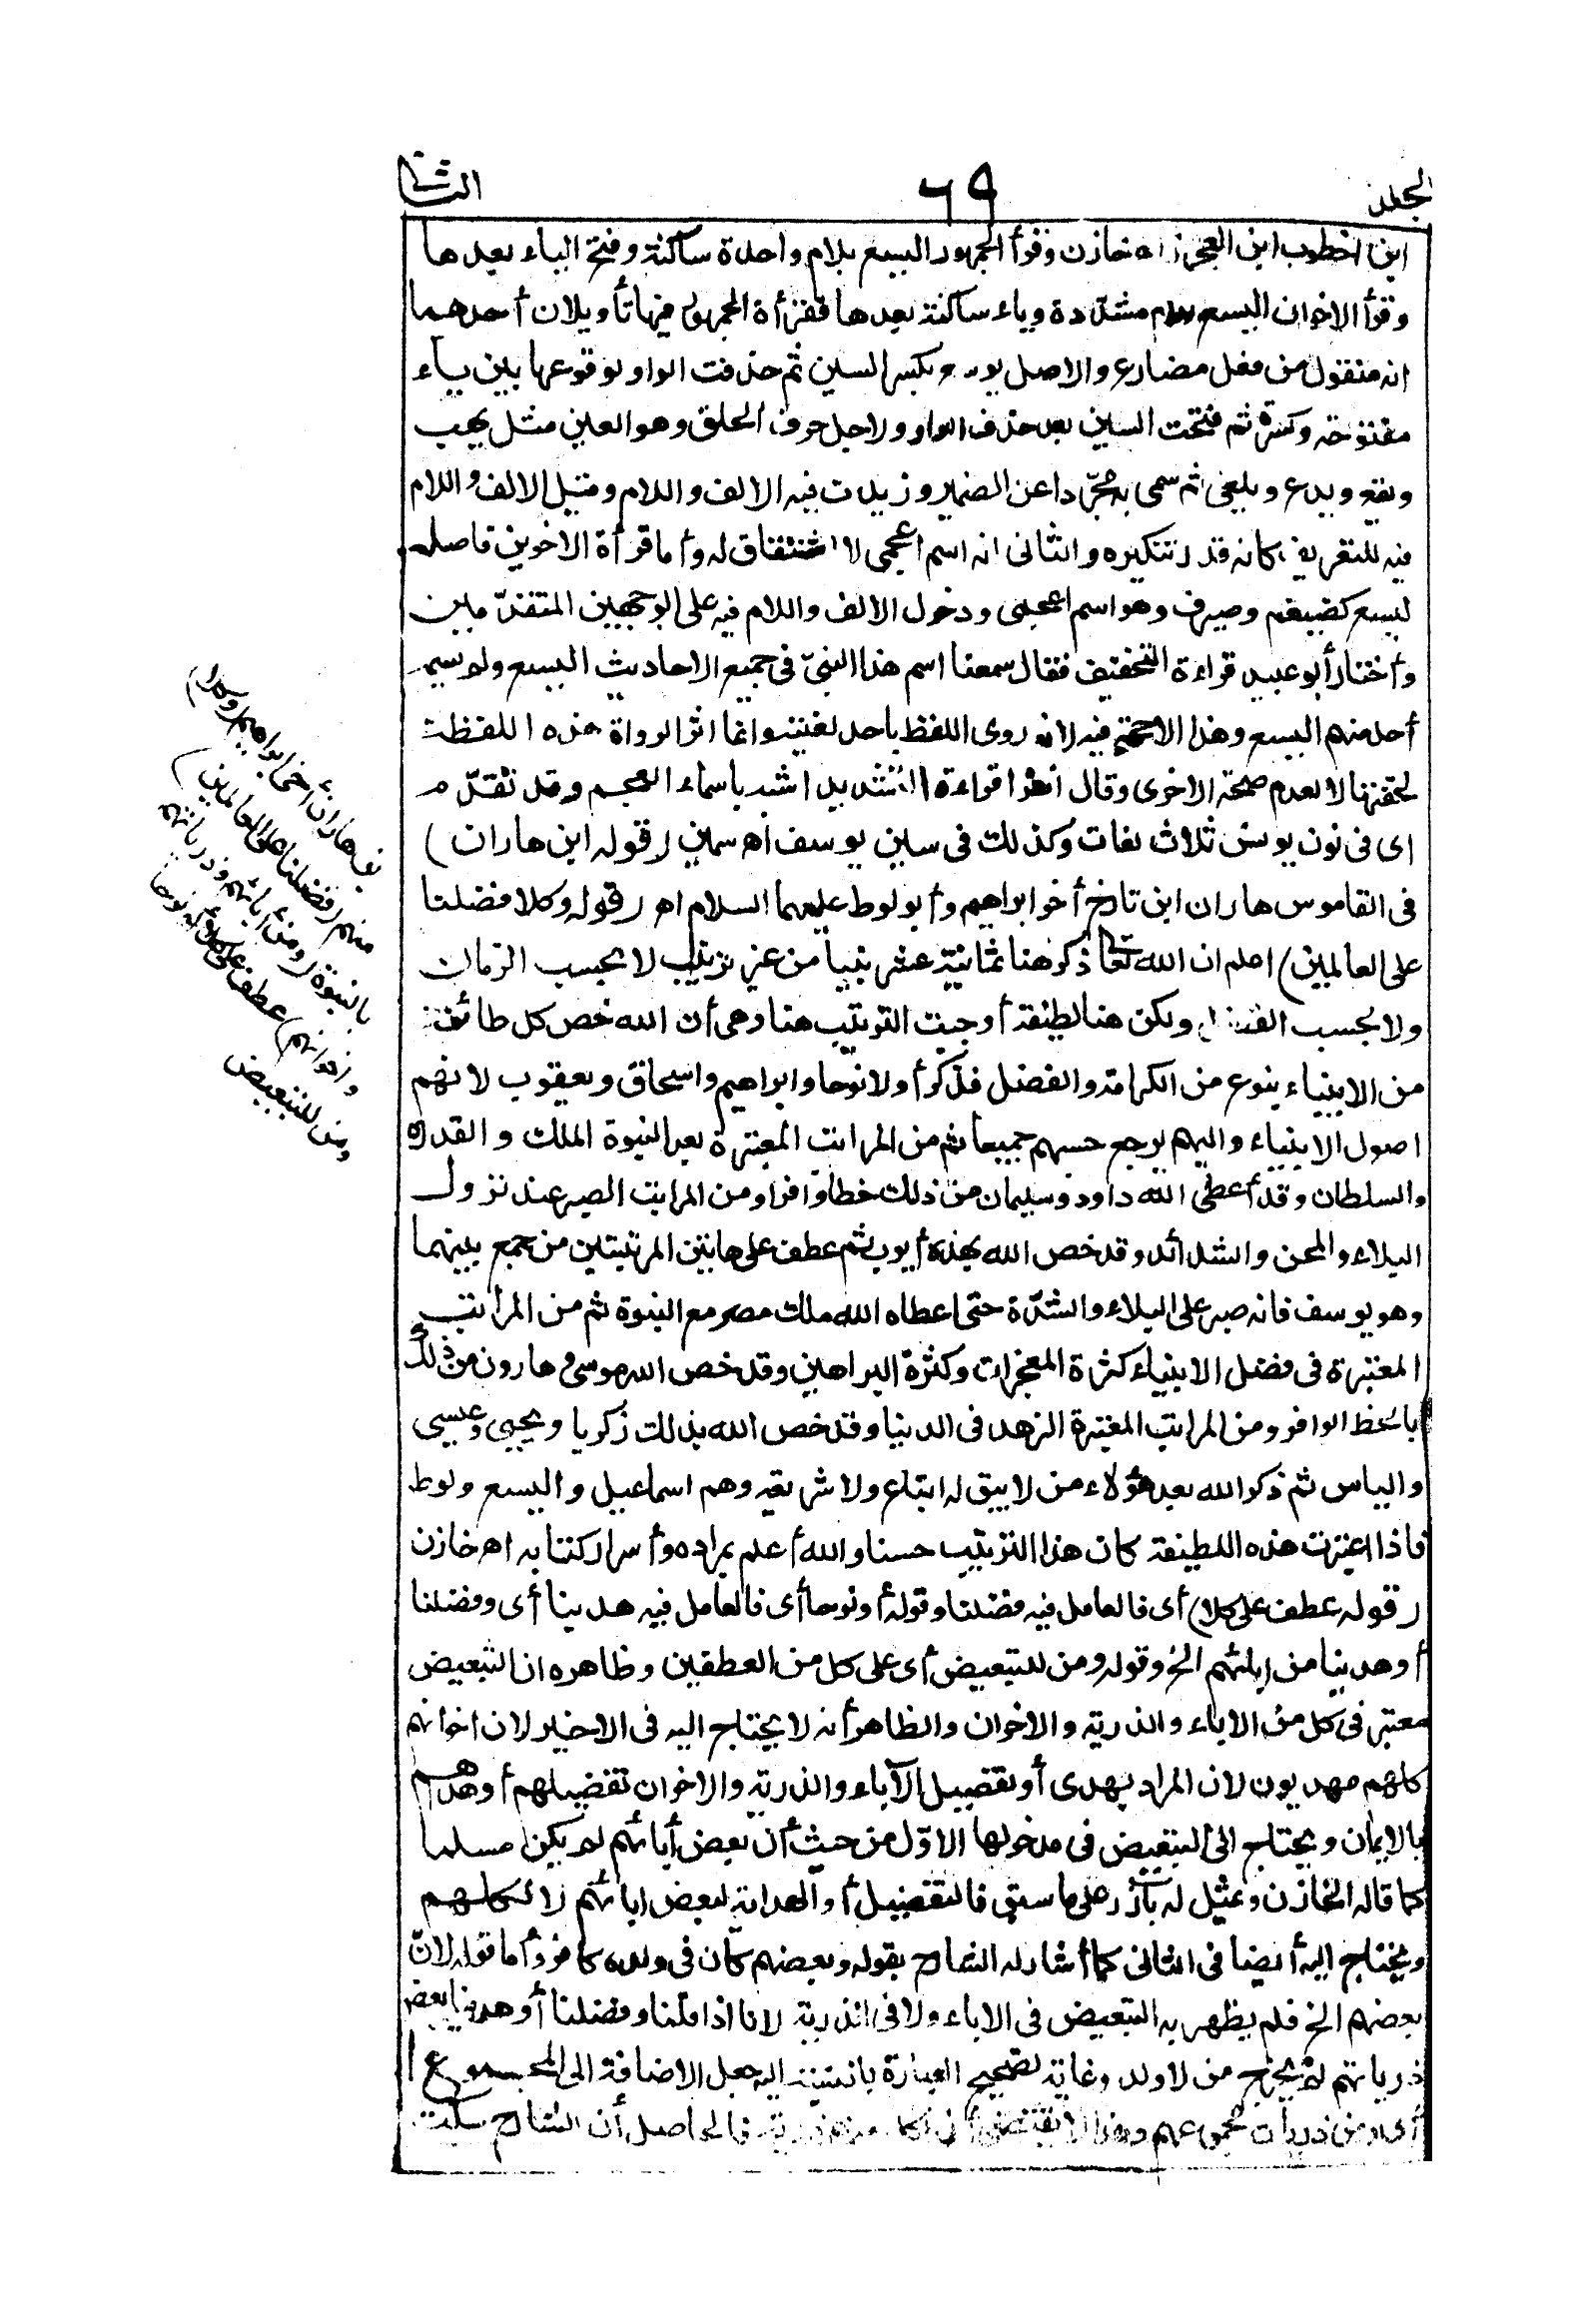 الجلد ٦٩ الثانى
ابن اخطوب ابن العجوز اه خازن وقرأ الجمهور اليسع بلام واحدة ساكنة وفتح الياء بعدها
وقرأ الاخوان الليسع بلام مشدّدة وياء ساكنة بعدها فقرأة الجمهور فيها تأويلان أحدهما
انه منقول من فعل مضارع والاصل يوسع بكسر السين ثم حذفت الواو لوقوعها بين ياء
مفتوحة وكسرة ثم فتحت السين بعد حذف الواو ولاجل حرف الحلق وهو العين مثل يهب
ويقع ويدع ويلغى ثم سمى به مجرّدا عن الضمير وزيدت فيه الالف واللام وقيل الالف واللام
فيه للتعريف كانه قدر تنكيره والثانى انه اسم اعجمى لا اشتقاق له وأما قرأة الاخوين فاصله
ليسع كضيغم وصيرف وهو اسم اعجمى ودخول الالف واللام فيه على الوجهين المتقدّمين
وأختار أبو عبيد قراءة التخفيف فقال سمعنا اسم هذا النبىّ فى جميع الاحاديث اليسع ولم يسمه
أحد منهم الليسع وهذا لا حجة فيه لانه روى اللفظ باحد لغتيه وانما اثر الرواة هذه اللفظة
لخفتها لا لعدم صحة الاخرى وقال الفرا قراءة التشديد اشبه باسماء العجم وقد تقدّم
اى فى نون يونس ثلاث لغات وكذلك فى سين يوسف اه سمين (قوله ابن هاران)
فى القاموس هاران ابن تارخ أخو ابراهيم وأبو لوط عليهما السلام اه (قوله وكلا فضلنا
على العالمين) اعلم ان الله تعا ذكر هنا ثمانية عشر نبيا من غير ترتيب لا بحسب الزمان
ولا بحسب الفضل ولكن هنا لطيفة أوجبت الترتيب هنا وهى أن الله خص كل طائفة
من الانبياء بنوع من الكرامة والفضل فذكر أولا نوحا وابراهيم واسحاق ويعقوب لانهم
اصول الانبياء واليهم يرجع حسبهم جميعا ثم من المراتب المعتبرة بعد النبوة الملك والقدرة
والسلطان وقد أعطى الله داود وسليمان من ذلك حظا وافرا ومن المراتب الصبر عند نزول
البلاء والمحن والشدائد وقد خص الله بهذه أيوب ثم عطف على هاتين المرتبتين من جمع بينهما
وهو يوسف فانه صبر على البلاء والشدّة حتى اعطاه الله ملك مصر مع النبوة ثم من المراتب
المعتبرة فى فضل الانبياء كثرة المعجزات وكثرة البراهين وقد خص الله موسى وهارون من ذلك
بالحظ الوافر ومن المراتب المعتبرة الزهد فى الدنيا وقد خص الله بذلك زكريا ويحيى وعيسى
والياس ثم ذكر الله بعد هؤلاء من لا يبق له اتباع ولا شريعة وهم اسماعيل واليسع ولوط
فاذا اعتبرت هذه اللطيفة كان هذا الترتيب حسنا والله أعلم بمراده وأسرار كتابه اه خازن
(قوله عطف على كلا) أى فالعامل فيه فضلنا وقوله أو نوحا أى فالعامل فيه هدينا أى وفضلنا
أو هدينا من ابائهم الخ وقوله ومن للتبعيض أى على كل من العطفين وظاهره ان التبعيض
معتبر فى كل من الاباء والذرية والاخوان والظاهر أنه لا يحتاج اليه فى الاخير لان اخوانهم
كلهم مهديون لان المراد بهدى أو تفضيل الآباء والذرية والاخوان تفضيلهم أو هداهم
بالايمان ويحتاج الى التبعيض فى مدخولها الاوّل من حيث أن بعض أبائهم لم يكن مسلما
كما قاله الخازن ويمثل له بآزر على ما سبق فالتفضيل أو الهداية لبعض ابائهم لا لكلهم
ويحتاج اليه أيضا فى الثانى كما أشار له الشارح بقوله وبعضهم كان فى ولده كافر وأما قوله لانّ
بعضهم الخ فلم يظهر به التبعيض فى الاباء ولا فى الذرية لانا اذا قلنا وفضلنا أو هدينا بعض
ذرياتهم لم يخرج من لا ولد وغاية تصحيح العبارة بالنسبة اليه جعل الاضافة الى المجموع
أى ومن ذريات مجموعهم وهذا لا يقتضى أن لكل منهم ذرية فالحاصل أن الشارح سكت
بن هاران أخى ابراهيم (وكلا)
منهم (فضلنا على العالمين)
بالنبوة (ومن أبائهم وذرياتهم
واخوانهم) عطف على كلا أو نوحا
ومن للتبعيض